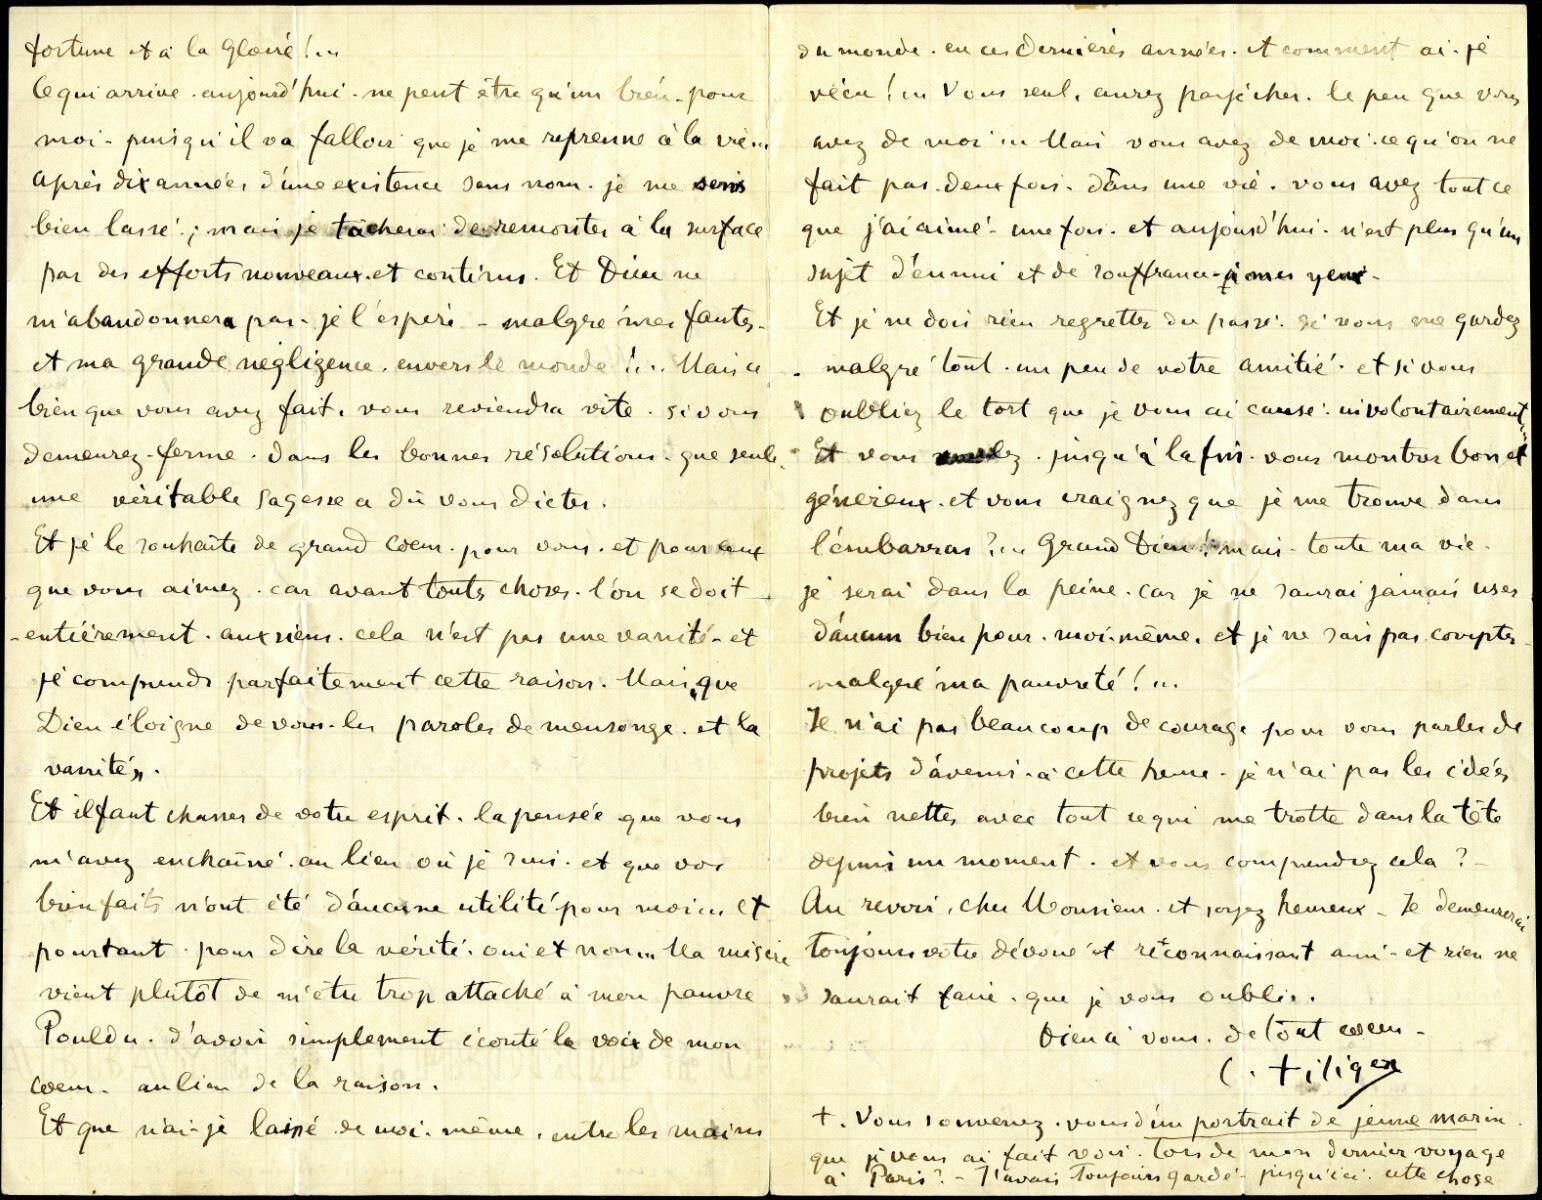 fortune et à la Gloire !...
Ce qui arrive. aujourd'hui. ne peut être qu'un bien. pour
moi - puisqu'il va falloir que je me reprenne à la vie...
après dix années d'une existence sans nom. je me sens
bien lassé. ; mais je tâcherai de remonter à la surface
par des efforts nouveaux et continus. Et Dieu ne
m'abandonnera pas. je l'espère - malgré mes fautes.
et ma grande négligence. envers le monde !... Mais ce
bien que vous avez fait. vous reviendra vite. si vous
demeurez. ferme. dans les bonnes résolutions. que seule
une véritable sagesse a dû vous dicter.
Et je le souhaite de grand coeur. pour vous. et pour ceux
que vous aimez. car avant toutes choses. l'on se doit
- entièrement. aux siens. cela n'est pas une vanité - et
je comprends parfaitement cette raison. Mais, que
Dieu éloigne de vous. les paroles de mensonge. et la
vanité.
Et il faut chasser de votre esprit. la pensée que vous
m'avez enchaîné. au lieu où je suis. et que vos
bienfaits n'ont été d'aucune utilité pour moi... et
pourtant. pour dire la vérité. oui et non... Ma misère
vient plutôt de m'être trop attaché à mon pauvre
Pouldu. d'avoir simplement écouté la voix de mon
coeur. au lieu de la raison.
Et que n'ai-je laissé de moi-même. entre les mains
du monde. en ces dernières années. et comment ai-je
vécu !... Vous seul. aurez par ici le peu que vous
avez de moi... Mais vous avez de moi. ce qu'on ne
fait pas. deux fois. dans une vie. vous avez tout ce
que j'ai aimé - une fois. et aujourd'hui. n'est plus qu'un
sujet d'ennui et de souffrance - à mes yeux -
Et je ne dois rien regretter du passé. si vous me gardez
malgré tout. un peu de votre amitié. et si vous
oubliez le tort que je vous ai causé. involontairement...
Et vous voulez. jusqu'à la fin. vous montrer bon et
génereux. et vous craignez que je me trouve dans
l'embarras ?... Grand Dieu ! mais. toute ma vie.
je serai dans la peine. car je ne saurai jamais user
d'aucun bien pour. moi-même. et je ne sais pas compter -
malgré ma pauvreté !...
Je n'ai pas beaucoup de courage pour vous parler de
projets d'avenir. à cette heure. je n'ai pas les idées
bien nettes avec tout ce qui me trotte dans la tête
depuis un moment. et vous comprendrez cela ? -
Au revoir, cher Monsieur. et soyez heureux - Je demeurerai
toujours votre dévoué et reconnaissant ami - et rien ne
saurait faire. que je vous oublie.
bien à vous. de tout coeur -
C. Filiger
+. Vous souvenez. vous d'un portrait de jeune marin
que je vous ai fait voir. lors de mon dernier voyage
à Paris ? - J'avais toujours gardé - jusqu'ici. cette chose